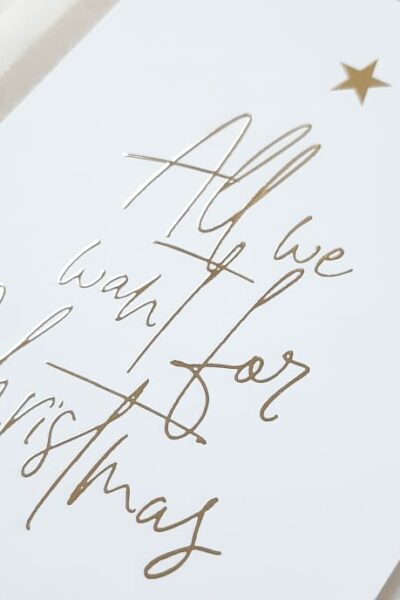 All we
want for
Christmas